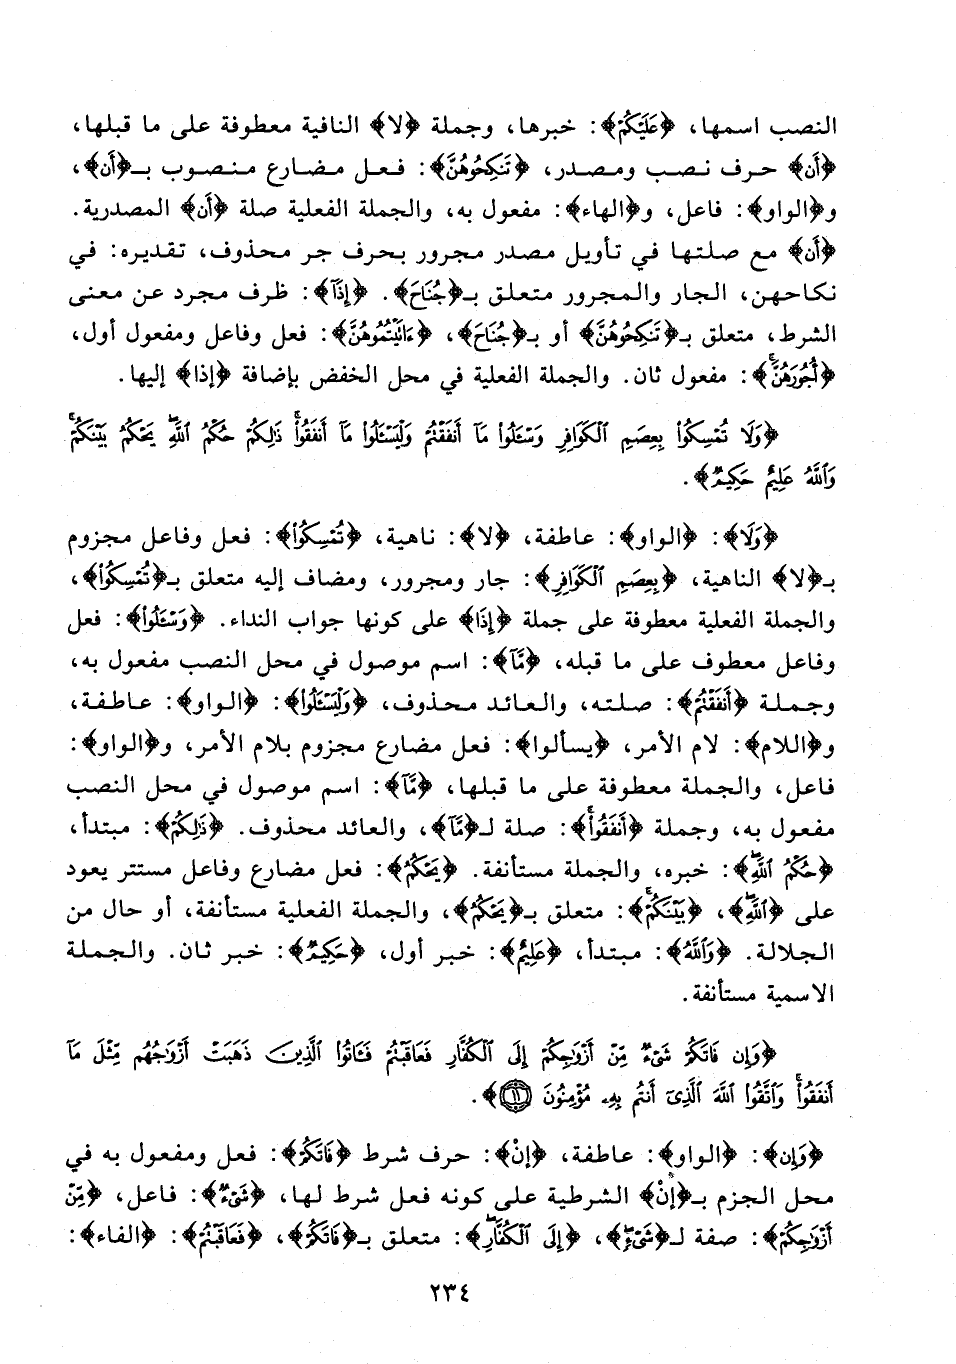 النصب اسمها، ﴿عَلَيْكُمْ﴾: خبرها، وجملة ﴿لا﴾ النافية معطوفة على ما قبلها،
﴿أن﴾ حرف نصب ومصدر، ﴿تَنكِحُوهُنَّ﴾: فعل مضارع منصوب بـ﴿أن﴾،
و﴿الواو﴾: فاعل، و﴿الهاء﴾: مفعول به، والجملة الفعلية صلة ﴿أن﴾ المصدرية.
﴿أن﴾ مع صلتها في تأويل مصدر مجرور بحرف جر محذوف، تقديره: في
نكاحهن، الجار والمجرور متعلق بـ﴿جُنَاحَ﴾. ﴿إِذَآ﴾: ظرف مجرد عن معنى
الشرط، متعلق بـ﴿تَنكِحُوهُنَّ﴾ أو بـ﴿جُنَاحَ﴾، ﴿ءَاتَيْتُمُوهُنَّ﴾: فعل وفاعل ومفعول أول،
﴿أُجُورَهُنَّۚ﴾: مفعول ثان. والجملة الفعلية في محل الخفض بإضافة ﴿إذا﴾ إليها.
﴿وَلَا تُمْسِكُوا۟ بِعِصَمِ ٱلْكَوَافِرِ وَسْـَٔلُوا۟ مَآ أَنفَقْتُمْ وَلْيَسْـَٔلُوا۟ مَآ أَنفَقُوا۟ۚ ذَٰلِكُمْ حُكْمُ ٱللَّهِۖ يَحْكُمُ بَيْنَكُمْۚ
وَٱللَّهُ عَلِيمٌ حَكِيمٌ﴾.
﴿وَلَا﴾: ﴿الواو﴾: عاطفة، ﴿لا﴾: ناهية، ﴿تُمْسِكُوا۟﴾: فعل وفاعل مجزوم
بـ﴿لا﴾ الناهية، ﴿بِعِصَمِ ٱلْكَوَافِرِ﴾: جار ومجرور، ومضاف إليه متعلق بـ﴿تُمْسِكُوا۟﴾،
والجملة الفعلية معطوفة على جملة ﴿إِذَا﴾ على كونها جواب النداء. ﴿وَسْـَٔلُوا۟﴾: فعل
وفاعل معطوف على ما قبله، ﴿مَّآ﴾: اسم موصول في محل النصب مفعول به،
وجملة ﴿أَنفَقْتُمْ﴾: صلته، والعائد محذوف، ﴿وَلْيَسْـَٔلُوا۟﴾: ﴿الواو﴾: عاطفة،
و﴿اللام﴾: لام الأمر، ﴿يسألوا﴾: فعل مضارع مجزوم بلام الأمر، و﴿الواو﴾:
فاعل، والجملة معطوفة على ما قبلها، ﴿مَّآ﴾: اسم موصول في محل النصب
مفعول به، وجملة ﴿أَنفَقُوا۟ۚ﴾: صلة لـ﴿مَّآ﴾، والعائد محذوف. ﴿ذَٰلِكُمْ﴾: مبتدأ،
﴿حُكْمُ ٱللَّهِۖ﴾: خبره، والجملة مستأنفة. ﴿يَحْكُمُ﴾: فعل مضارع وفاعل مستتر يعود
على ﴿ٱللَّهِۖ﴾، ﴿بَيْنَكُمْۚ﴾: متعلق بـ﴿يَحْكُمُ﴾، والجملة الفعلية مستأنفة، أو حال من
الجلالة. ﴿وَٱللَّهُ﴾: مبتدأ، ﴿عَلِيمٌ﴾: خبر أول، ﴿حَكِيمٌ﴾: خبر ثان. والجملة
الاسمية مستأنفة.
﴿وَإِن فَاتَكُمْ شَىْءٌ مِّنْ أَزْوَٰجِكُمْ إِلَى ٱلْكُفَّارِ فَعَاقَبْتُمْ فَـَٔاتُوا۟ ٱلَّذِينَ ذَهَبَتْ أَزْوَٰجُهُم مِّثْلَ مَآ
أَنفَقُوا۟ۚ وَٱتَّقُوا۟ ٱللَّهَ ٱلَّذِىٓ أَنتُم بِهِۦ مُؤْمِنُونَ ⑪﴾.
﴿وَإِن﴾: ﴿الواو﴾: عاطفة، ﴿إنْ﴾: حرف شرط ﴿فَاتَكُمْ﴾: فعل ومفعول به في
محل الجزم بـ﴿إنْ﴾ الشرطية على كونه فعل شرط لها، ﴿شَىْءٌ﴾: فاعل، ﴿مِّنْ
أَزْوَٰجِكُمْ﴾: صفة لـ﴿شَىْءٍۖ﴾، ﴿إِلَى ٱلْكُفَّارِۖ﴾: متعلق بـ﴿فَاتَكُمْ﴾، ﴿فَعَاقَبْتُمْ﴾: ﴿الفاء﴾:
٢٣٤